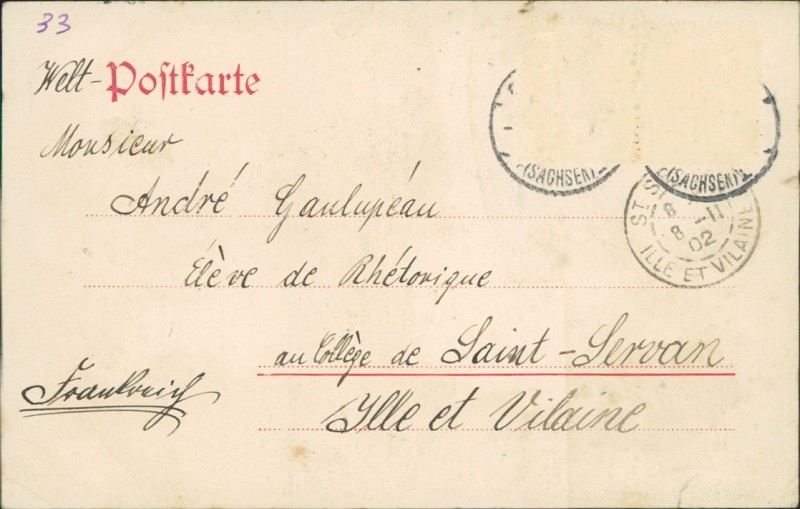 33
Welt-Postkarte
Monsieur
André Gaulupéau
Elève de Rhétorique
au Collège de Saint-Servan
Ille et Vilaine
Frankreich
(SACHSEN)
(SACHSEN)
ST
8 -11
02
ILLE ET VILAINE